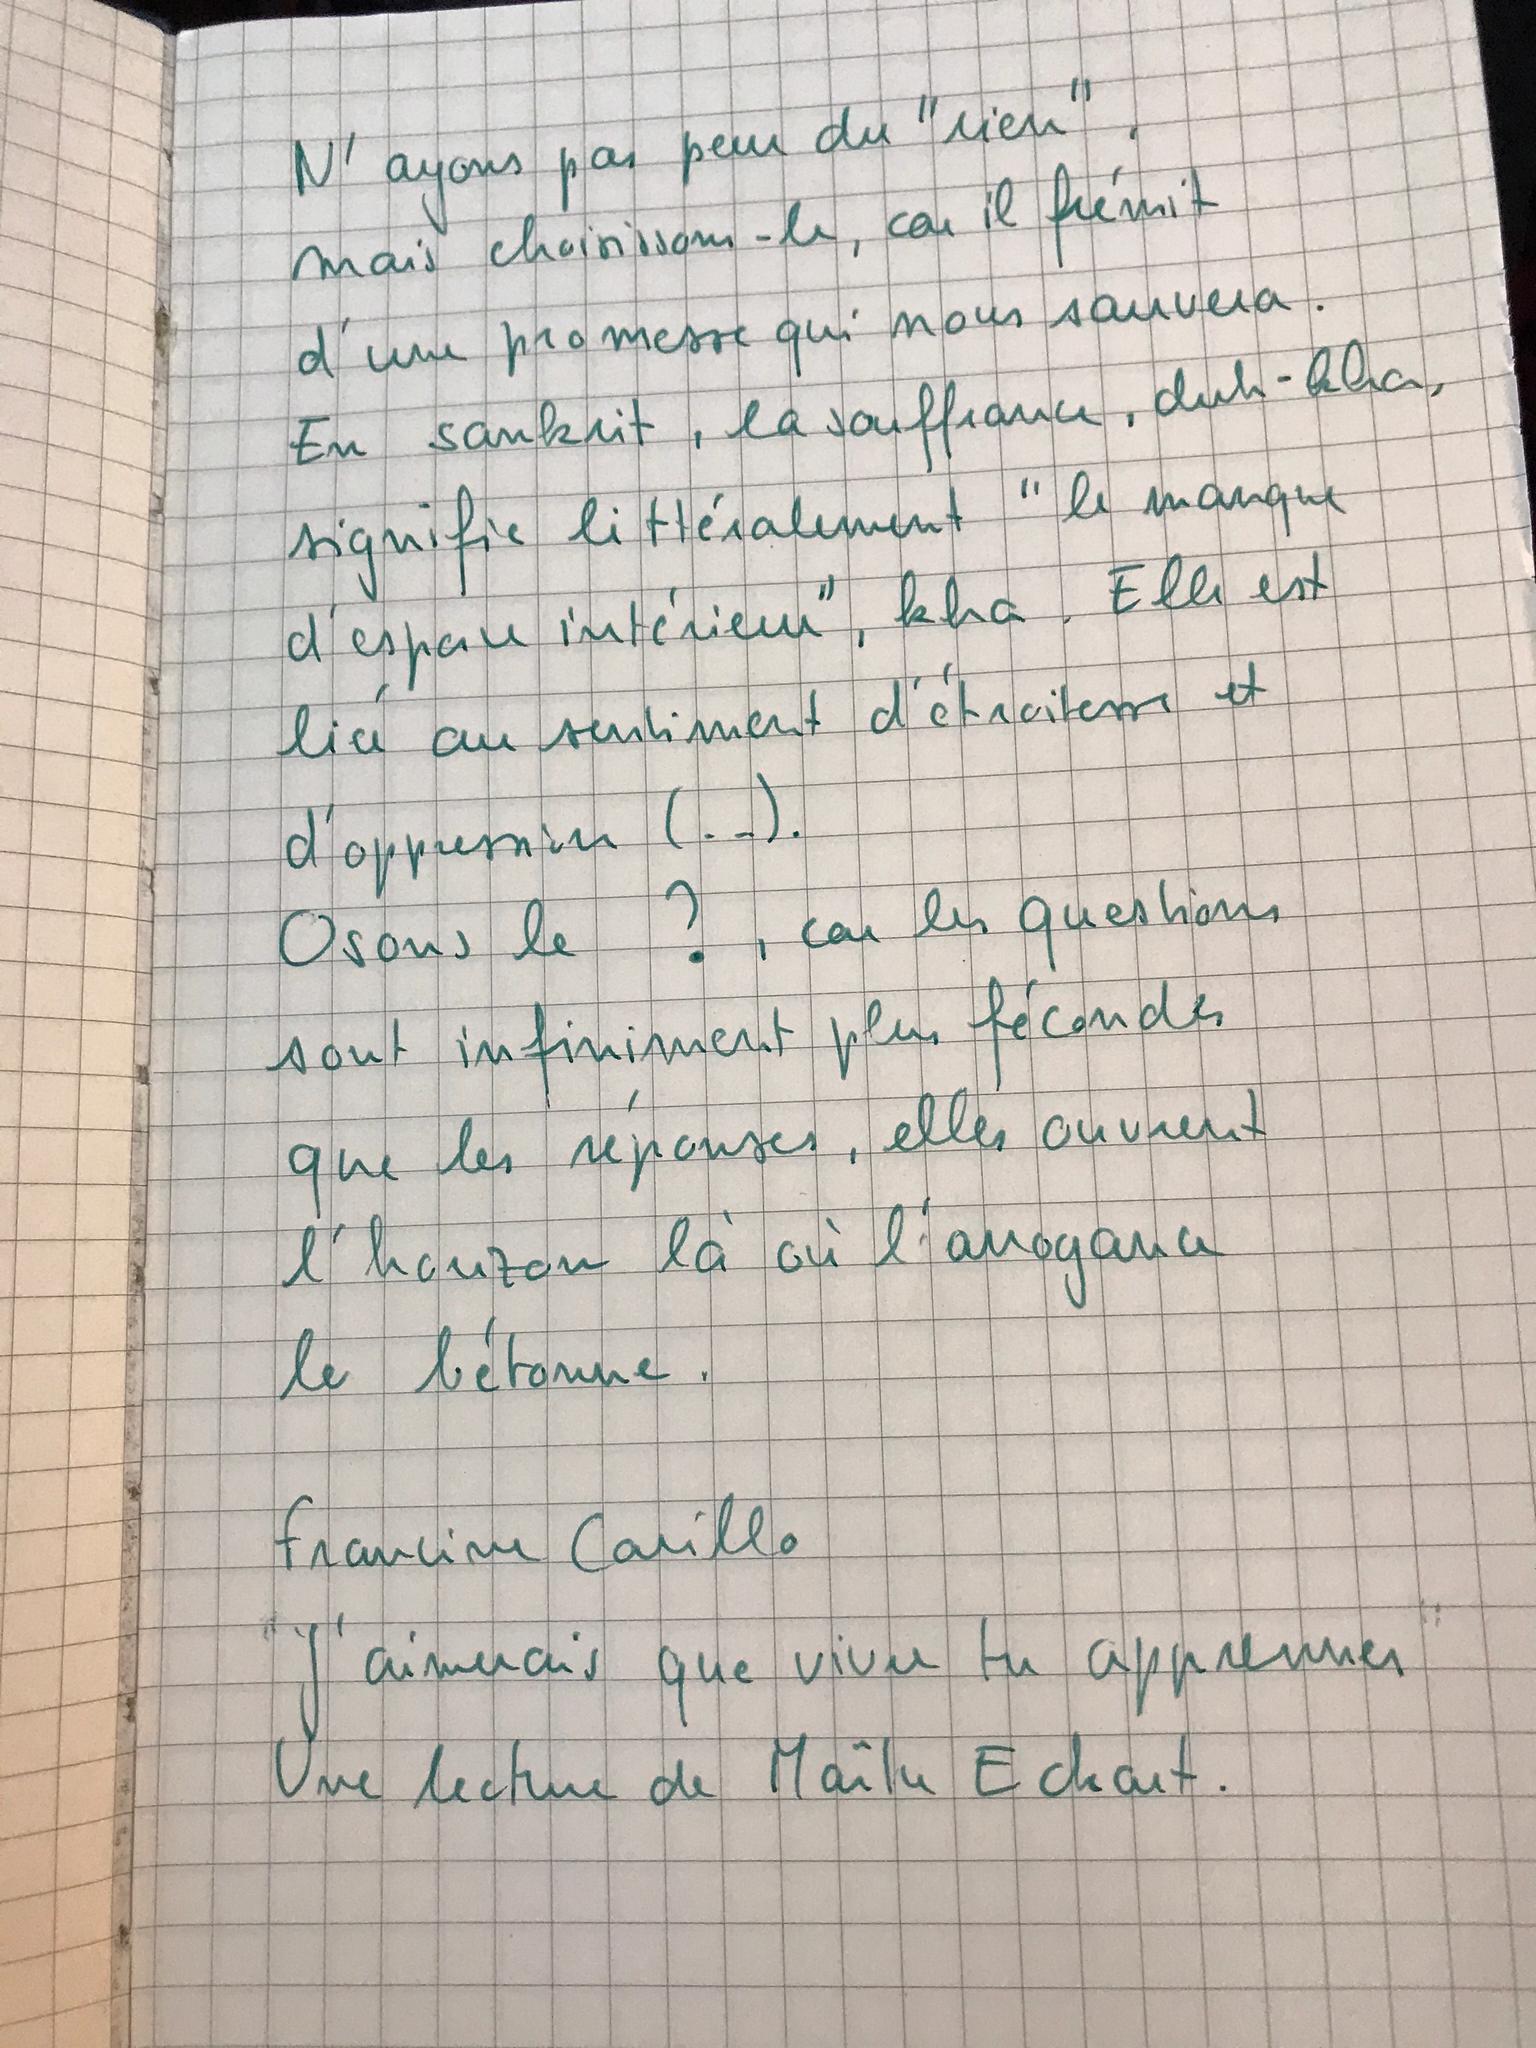 N'ayons pas peur du "rien",
mais choisissons-le, car il frémit
d'une promesse qui nous sauvera.
En sankrit, la souffrance, duh-kha,
signifie littéralement "le manque
d'espace intérieur", kha. Elle est
liée au sentiment d'étroitesse et
d'oppression (...).
Osons le ?, car les questions
sont infiniment plus fécondes
que les réponses, elles ouvrent
l'horizon là où l'arrogance
le bétonne.
Francine Carillo
"J'aimerais que vivre tu apprennes"
Une lecture de Maître Eckart.